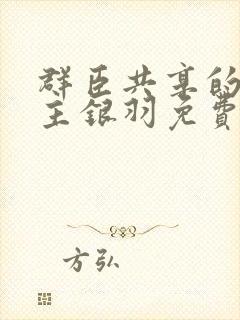 群臣共享的
主银羽免費
方弘